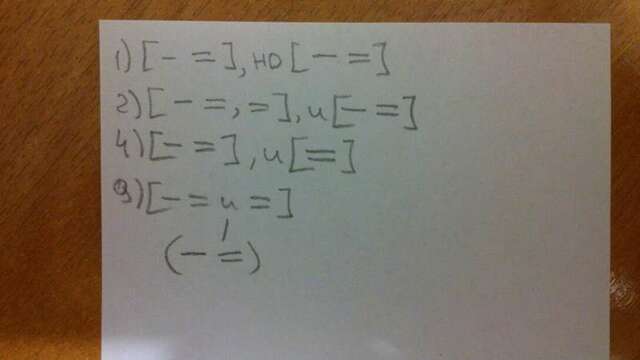 1) [– =], но [– =]
2) [– =, =], и [– =]
4) [– =], и [=]
9) [– = и =]
(– =)